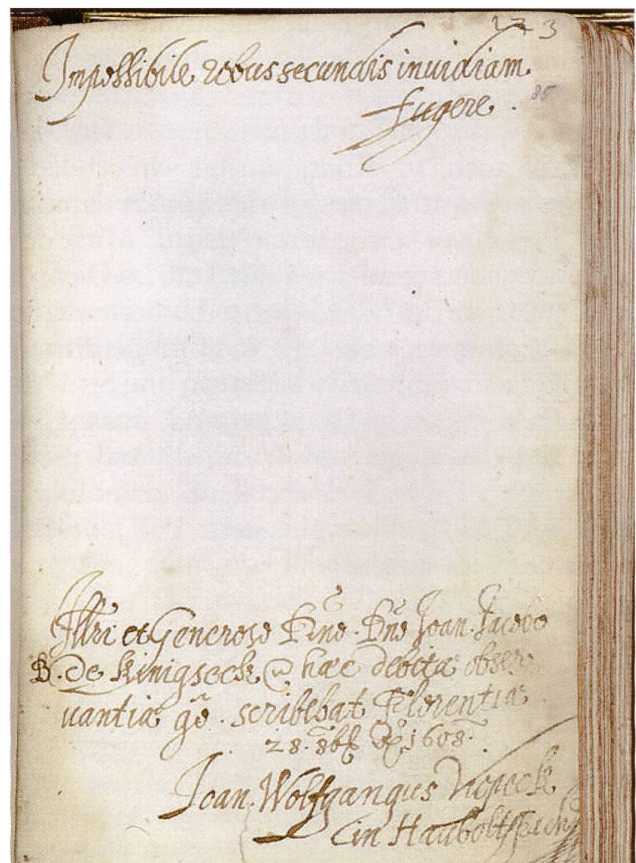 123
86
Impossibile rebus secundis inuidiam
fugere.
Illri et Generoso Dno. Dno Joan. Jacobo
B. de Kinigseck hæc debita obser
uantia scribebat Florentiæ
28. 1608.
Joan. Wolfgangus
in